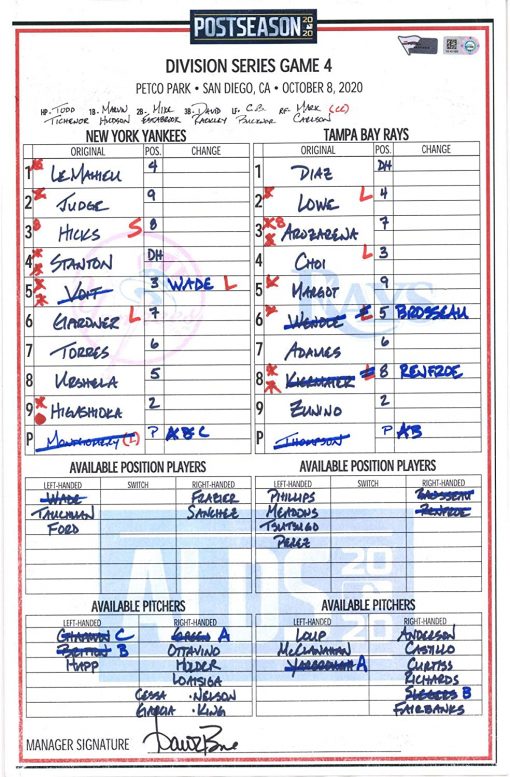 POSTSEASON 2020
DIVISION SERIES GAME 4
PETCO PARK • SAN DIEGO, CA • OCTOBER 8, 2020
HP. TODD 1B. MARVIN 2B. MIKE 3B. DAVID LF. C.B. RF. MARK (CC)
TICHENOR HUDSON ESTABROOK RACKLEY BUCKNOR CARLSON
NEW YORK YANKEES
ORIGINAL POS. CHANGE
1 LEMAHIEU 4
2 JUDGE 9
3 HICKS S 8
4 STANTON DH
5 VOIT 3 WADE L
6 GARDNER L 7
7 TORRES 6
8 URSHELA 5
9 HIGASHIOKA 2
P MONTGOMERY (L) P A B C
TAMPA BAY RAYS
ORIGINAL POS. CHANGE
1 DIAZ DH
2 LOWE L 4
3 AROZARENA 7
4 CHOI L 3
5 MARGOT 9
6 WENDLE L 5 BROSSEAU
7 ADAMES 6
8 KIERMAIER L 8 RENFROE
9 ZUNINO 2
P THOMPSON P AB
RAYS
AVAILABLE POSITION PLAYERS
LEFT-HANDED SWITCH RIGHT-HANDED
WADE FRAZIER
TAUCHMAN SANCHEZ
FORD
AVAILABLE POSITION PLAYERS
LEFT-HANDED SWITCH RIGHT-HANDED
PHILLIPS BROSSEAU
MEADOWS RENFROE
TSUTSUGO
PEREZ
ALDS 2020
AVAILABLE PITCHERS
LEFT-HANDED RIGHT-HANDED
CHAPMAN C GREEN A
BRITTON B OTTAVINO
HAPP HOLDER
LOAISIGA
CESSA • NELSON
GARCIA • KING
AVAILABLE PITCHERS
LEFT-HANDED RIGHT-HANDED
LOUP ANDERSON
MCCLANAHAN CASTILLO
YARBROUGH A CURTISS
RICHARDS
SLEGERS B
FAIRBANKS
MANAGER SIGNATURE